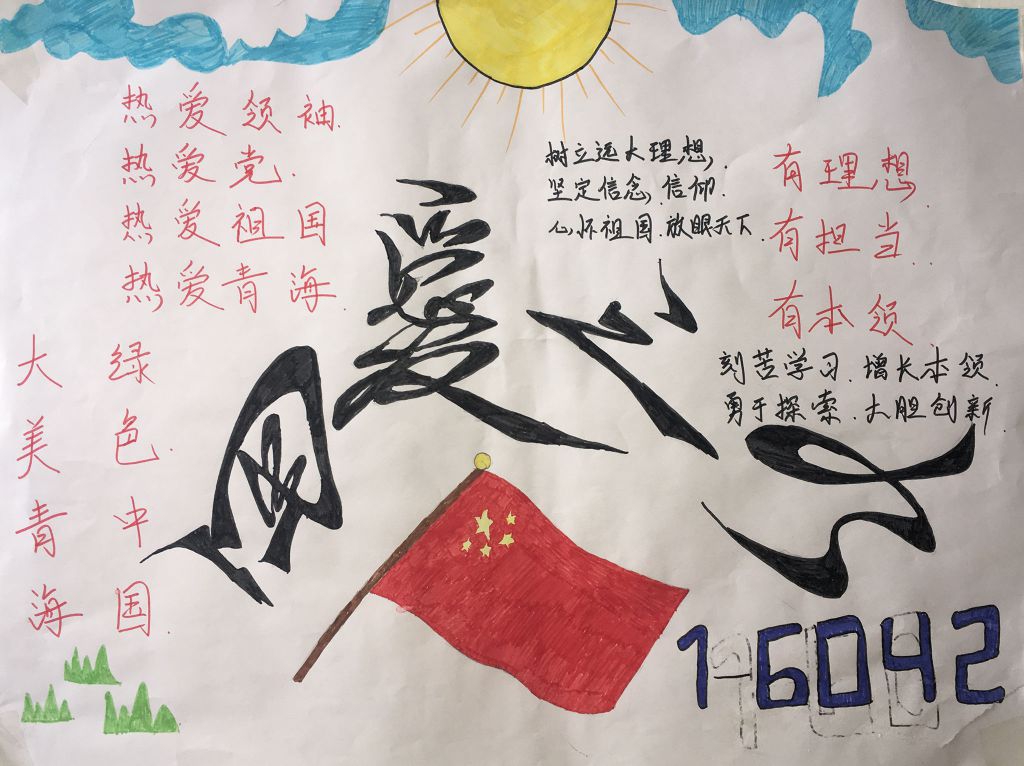 热爱领袖.
热爱党.
热爱祖国
热爱青海.
树立远大理想,
坚定信念.信仰.
心怀祖国.放眼天下.
有理想
有担当.
有本领
刻苦学习.增长本领.
勇于探索.大胆创新.
大美青海
绿色.中国.
16042